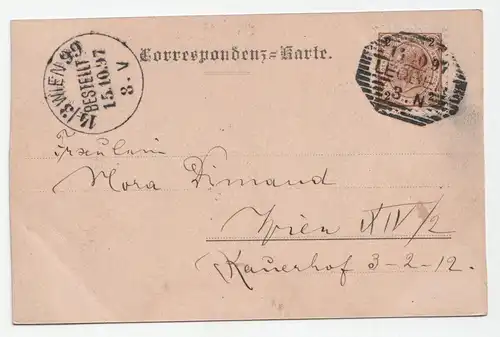 Correspondenz=Karte.
14/3 WIEN 99
BESTELLT
15.10.97
8. V
3. N
2
2
Fräulein
Nora Dimand
Wien
Kauerhof 3-2-12.